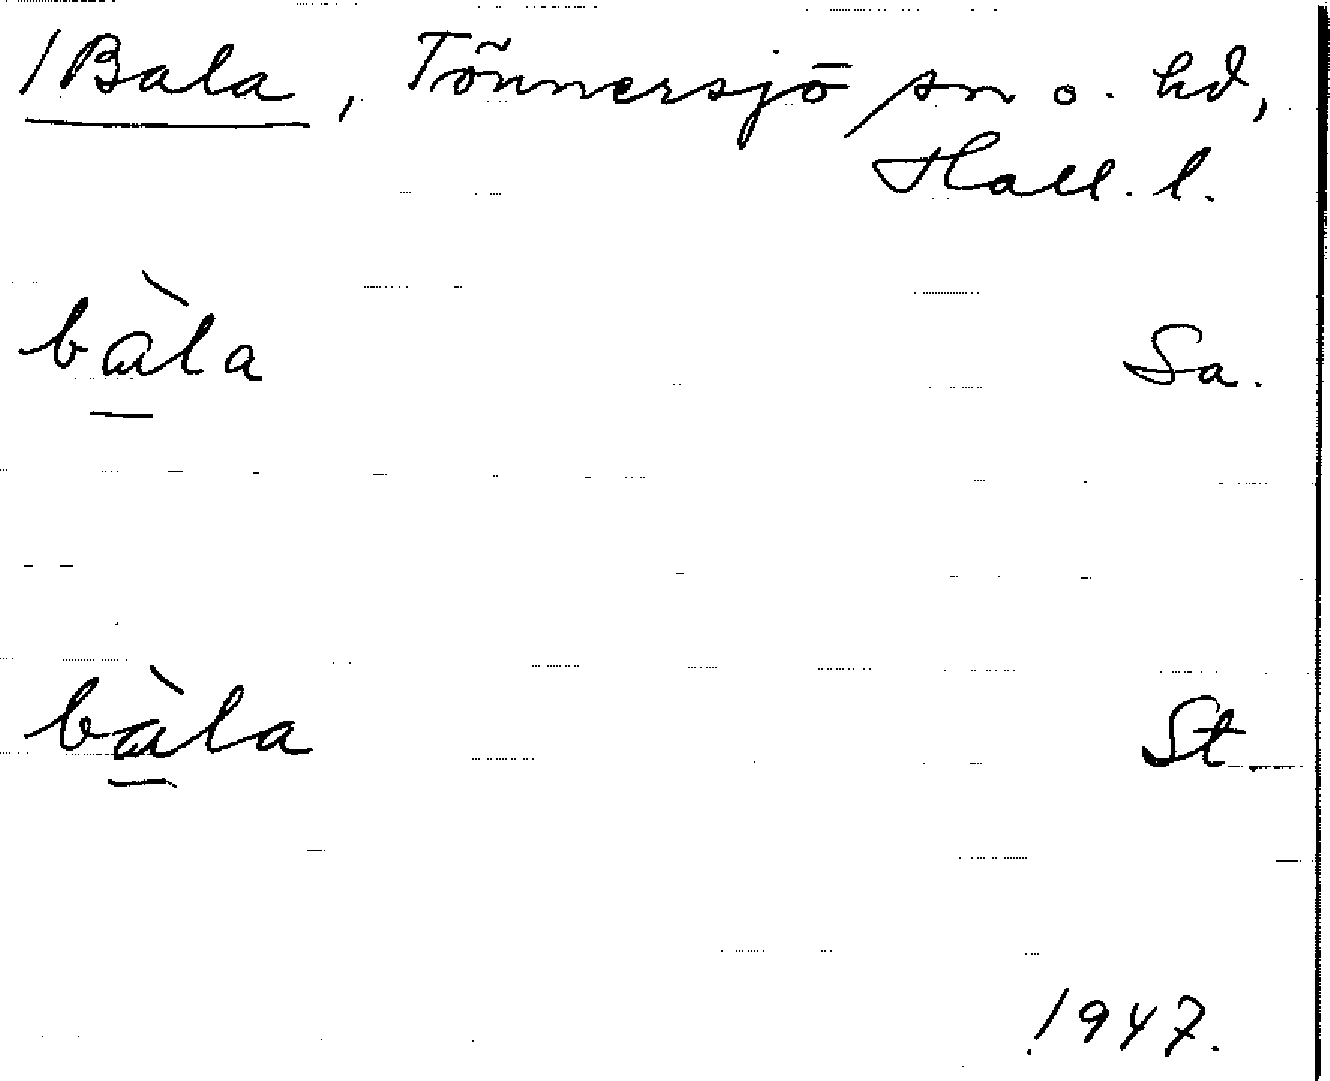 /Bala, Tönnersjö sn o. hd,
Hall. l.
bàla Sa.
bàla St.
1947.